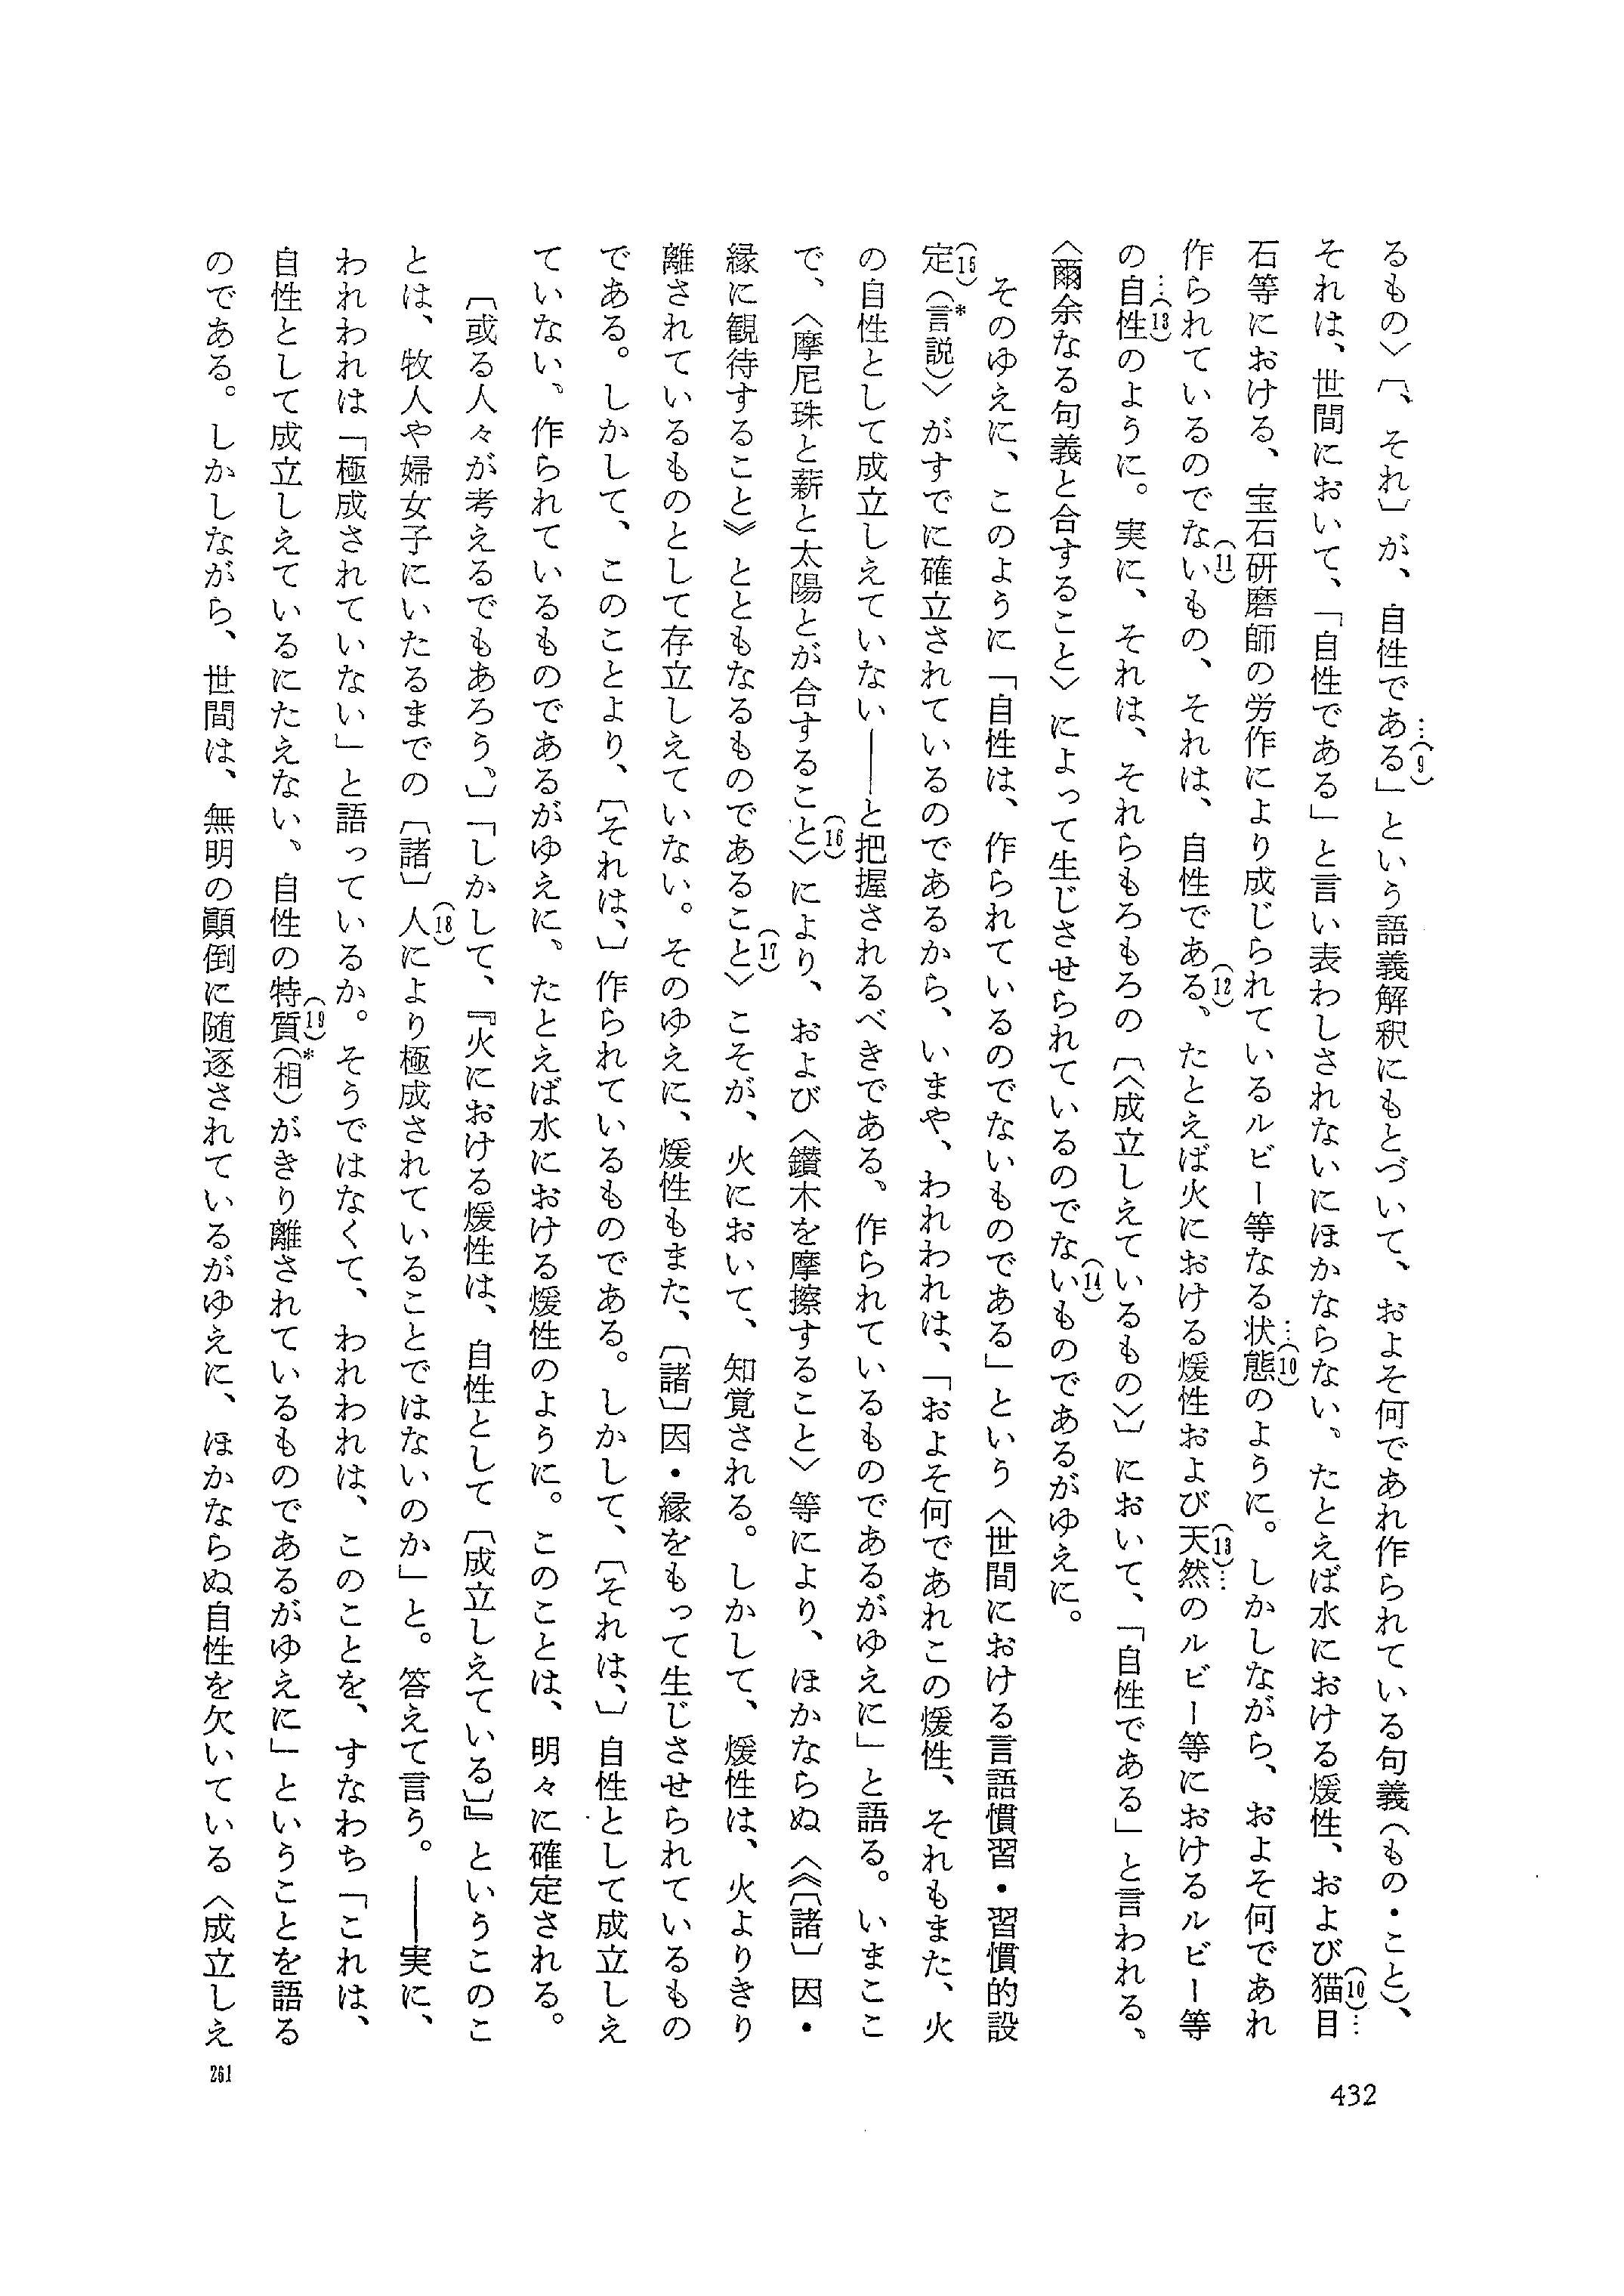 るもの〉〔、それ〕が、自性である…(9)」という語義解釈にもとづいて、およそ何であれ作られている句義(もの・こと)、
それは、世間において、「自性である」と言い表わしされないにほかならない。たとえば水における煖性、および猫(10)…目
石等における、宝石研磨師の労作により成じられているルビー等なる状態…(10)のように。しかしながら、およそ何であれ
作られているのでない(11)もの、それは、自性である(12)。たとえば火における煖性および天然(13)…のルビー等におけるルビー等
の自性…(13)のように。実に、それは、それらもろもろの〔〈成立しえているもの〉〕において、「自性である」と言われる、
〈爾余なる句義と合すること〉によって生じさせられているのでない(14)ものであるがゆえに。
そのゆえに、このように「自性は、作られているのでないものである」という〈世間における言語慣習・習慣的設
定(15)(言*説)〉がすでに確立されているのであるから、いまや、われわれは、「およそ何であれこの煖性、それもまた、火
の自性として成立しえていない――と把握されるべきである、作られているものであるがゆえに」と語る。いまここ
で、〈摩尼珠と薪と太陽とが合すること〉(16)により、および〈鑽木を摩擦すること〉等により、ほかならぬ〈《〔諸〕因・
縁に観待すること》とともなるものであること〉(17)こそが、火において、知覚される。しかして、煖性は、火よりきり
離されているものとして存立しえていない。そのゆえに、煖性もまた、〔諸〕因・縁をもって生じさせられているもの
である。しかして、このことより、〔それは、〕作られているものである。しかして、〔それは、〕自性として成立しえ
ていない、作られているものであるがゆえに。たとえば水における煖性のように。このことは、明々に確定される。
〔或る人々が考えるでもあろう。〕「しかして、『火における煖性は、自性として〔成立しえている〕』というこのこ
とは、牧人や婦女子にいたるまでの〔諸〕人(18)により極成されていることではないのか」と。答えて言う。――実に、
われわれは「極成されていない」と語っているか。そうではなくて、われわれは、このことを、すなわち「これは、
自性として成立しえているにたえない、自性の特質(19)(相*)がきり離されているものであるがゆえに」ということを語る
のである。しかしながら、世間は、無明の顚倒に随逐されているがゆえに、ほかならぬ自性を欠いている〈成立しえ
261
432